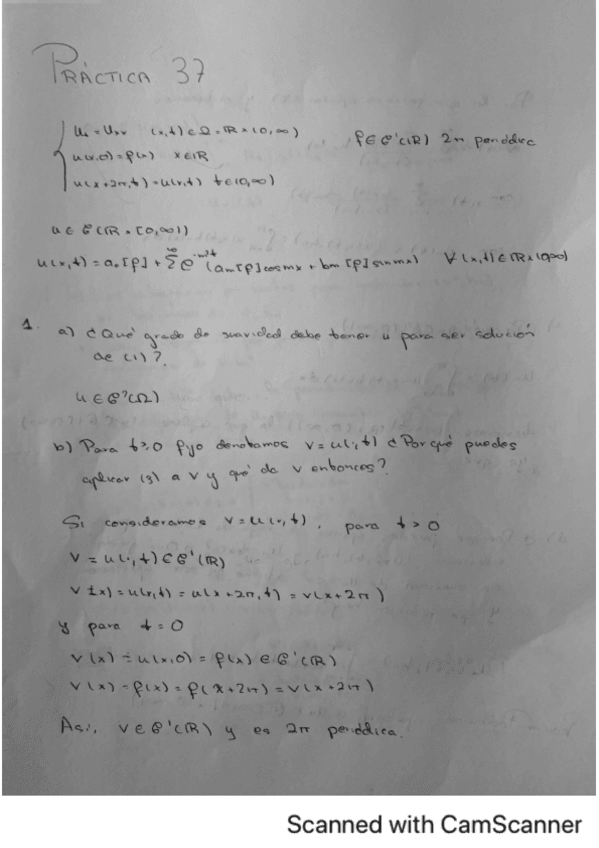 PRÁCTICA 37
uₜ = uₓₓ (x,t) ∈ Ω = ℝ × (0,∞) f ∈ C¹(ℝ) 2π periódica
u(x,0) = f(x) x ∈ ℝ
u(x+2π,t) = u(x,t) t ∈ (0,∞)
u ∈ C(ℝ × [0,∞))
u(x,t) = a₀[f] + Σ^∞ e^(-m²t) (aₘ[f] cos mx + bₘ[f] sin mx) ∀(x,t) ∈ ℝ × (0,∞)
1. a) ¿Qué grado de suavidad debe tener u para ser solución
de (1)?
u ∈ C²(Ω)
b) Para t≥0 fijo denotamos v = u(·,t) ¿Por qué puedes
aplicar (3) a v y qué da v entonces?
Si consideramos v = u(·,t), para t > 0
v = u(·,t) ∈ C¹(ℝ)
v(x) = u(x,t) = u(x+2π,t) = v(x+2π)
y para t = 0
v(x) = u(x,0) = f(x) ∈ C¹(ℝ)
v(x) = f(x) = f(x+2π) = v(x+2π)
Así, v ∈ C¹(ℝ) y es 2π periódica.
Scanned with CamScanner